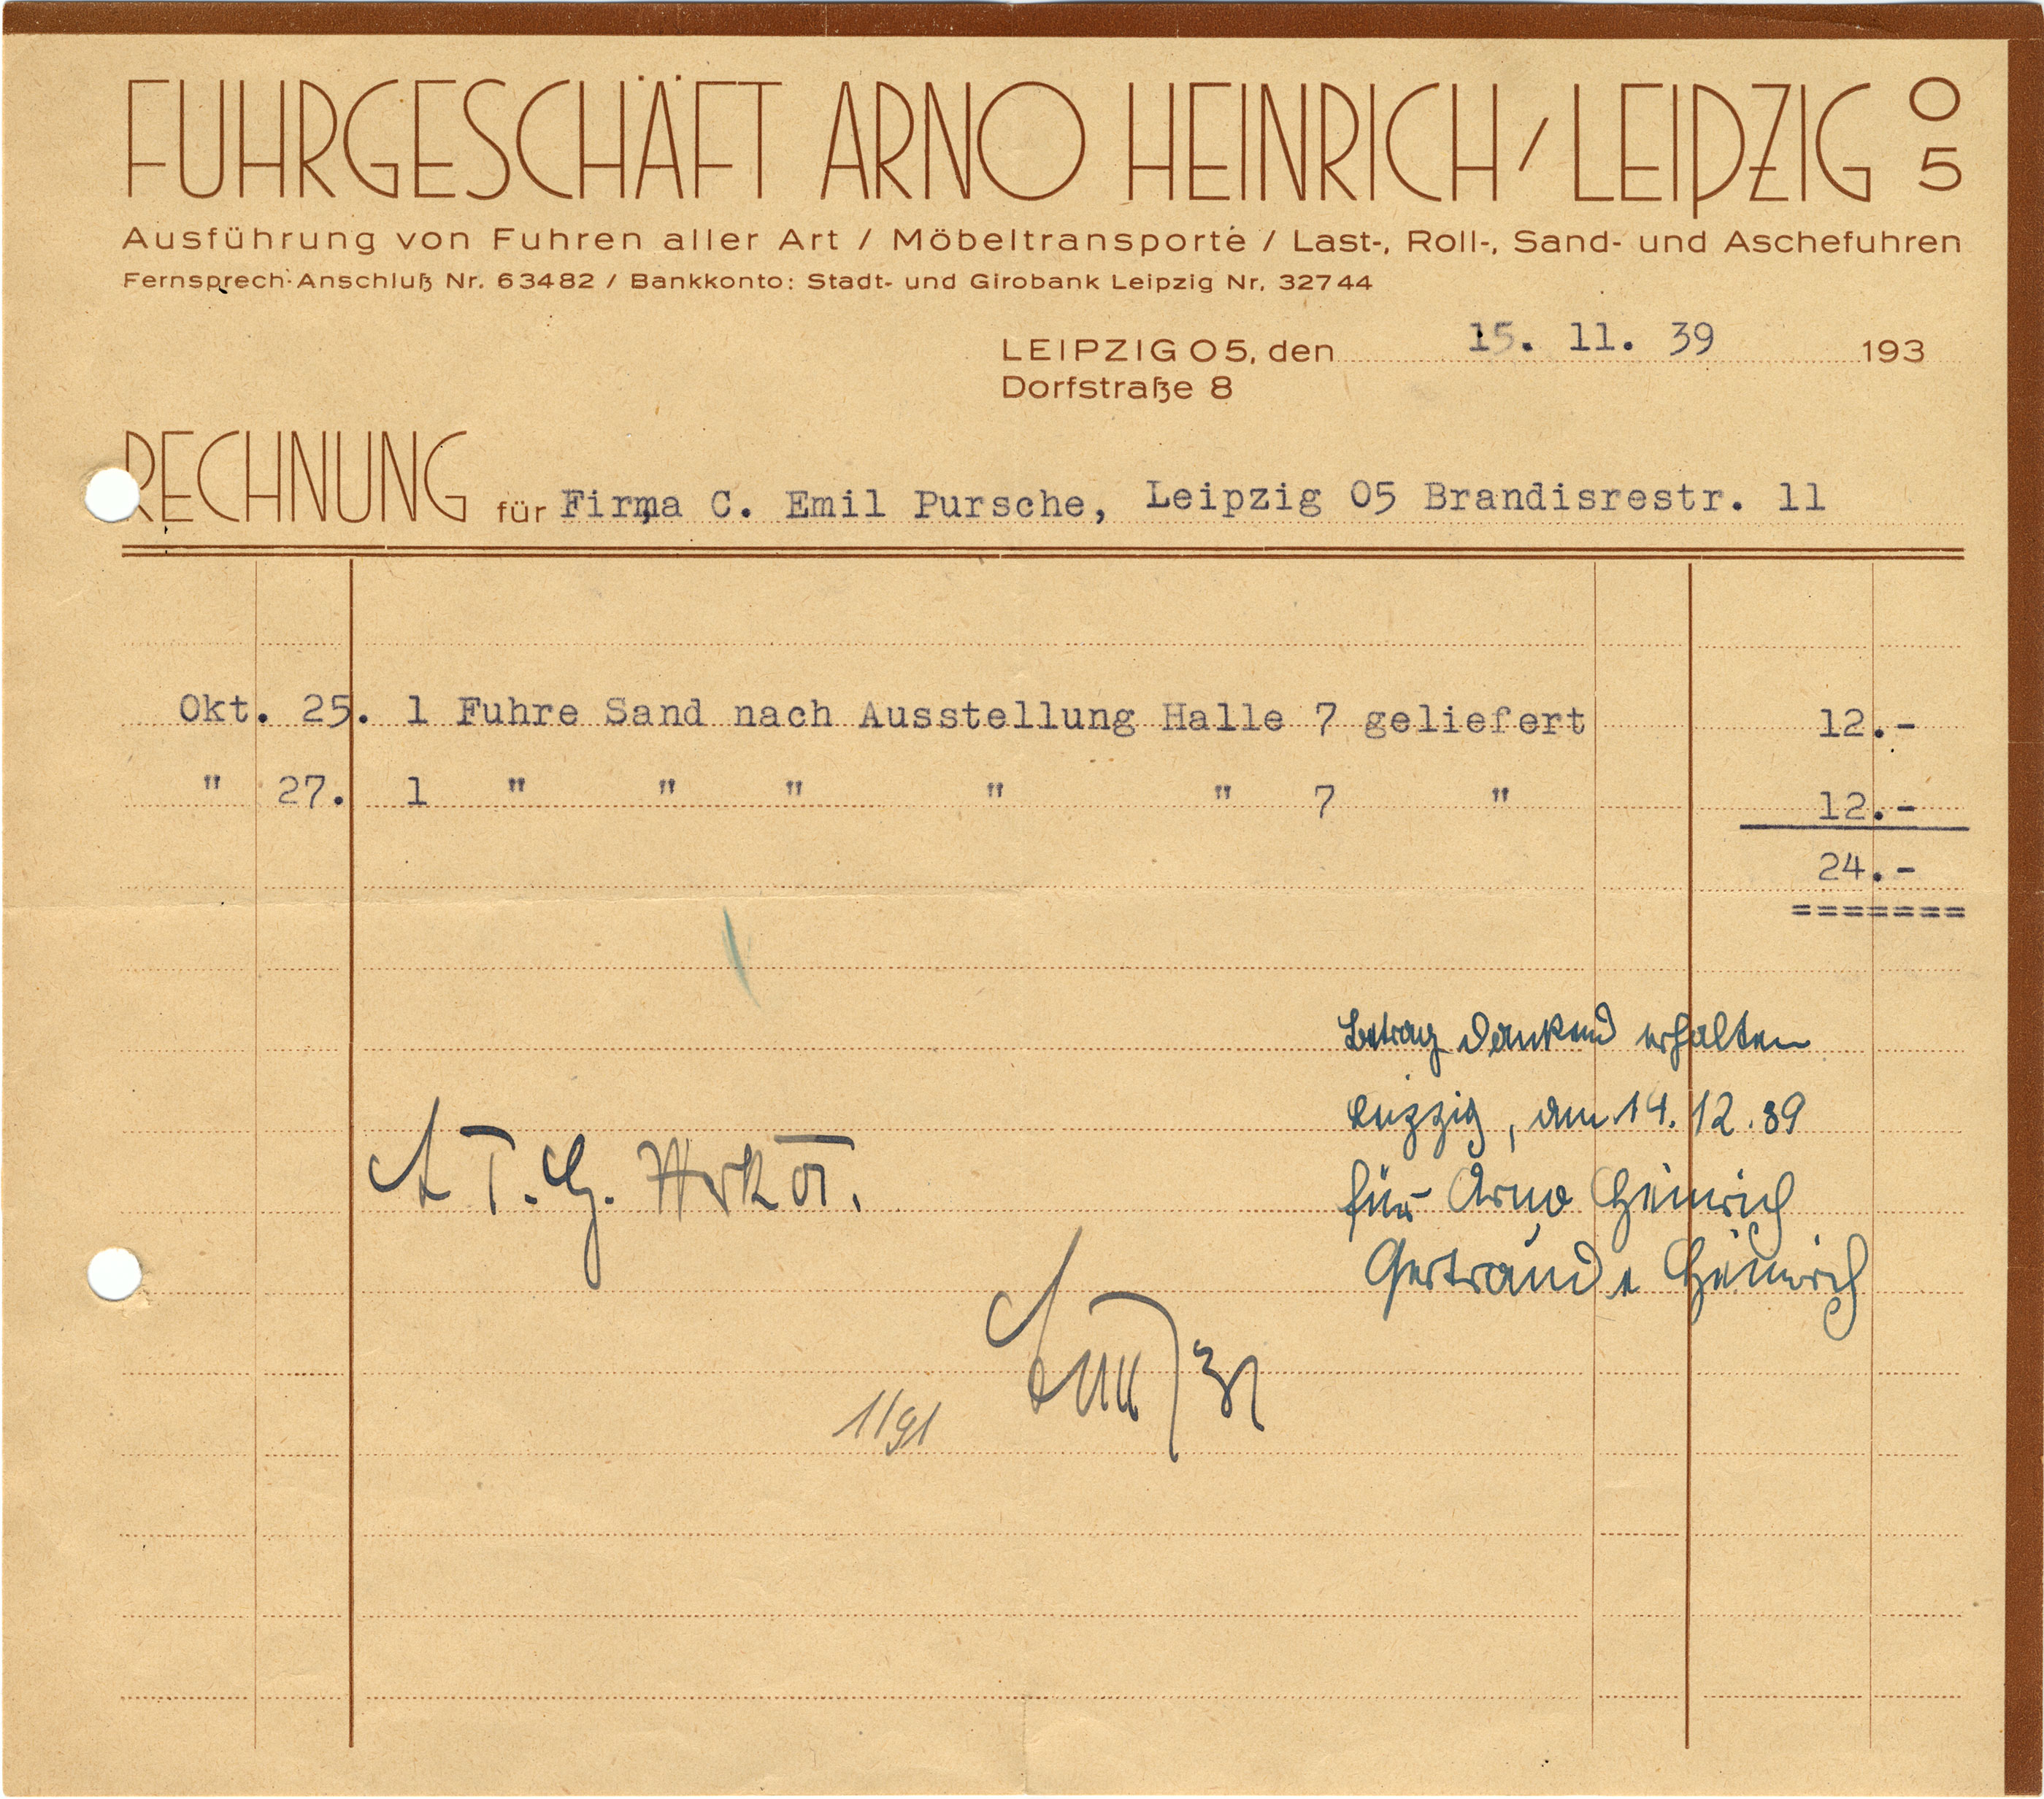 FUHRGESCHÄFT ARNO HEINRICH / LEIPZIG O 5
Ausführung von Fuhren aller Art / Möbeltransporte / Last-, Roll-, Sand- und Aschefuhren
Fernsprech-Anschluß Nr. 63482 / Bankkonto: Stadt- und Girobank Leipzig Nr. 32744
LEIPZIG O 5, den 15. 11. 39 193
Dorfstraße 8
RECHNUNG für Firma C. Emil Pursche, Leipzig O5 Brandisrestr. 11
Okt. 25. 1 Fuhre Sand nach Ausstellung Halle 7 geliefert 12.-
" 27. 1 " " " " " 7 " 12.-
24.-
=======
Betrag dankend erhalten
Leipzig, am 14. 12. 39
für Arno Heinrich
Gertraude Heinrich